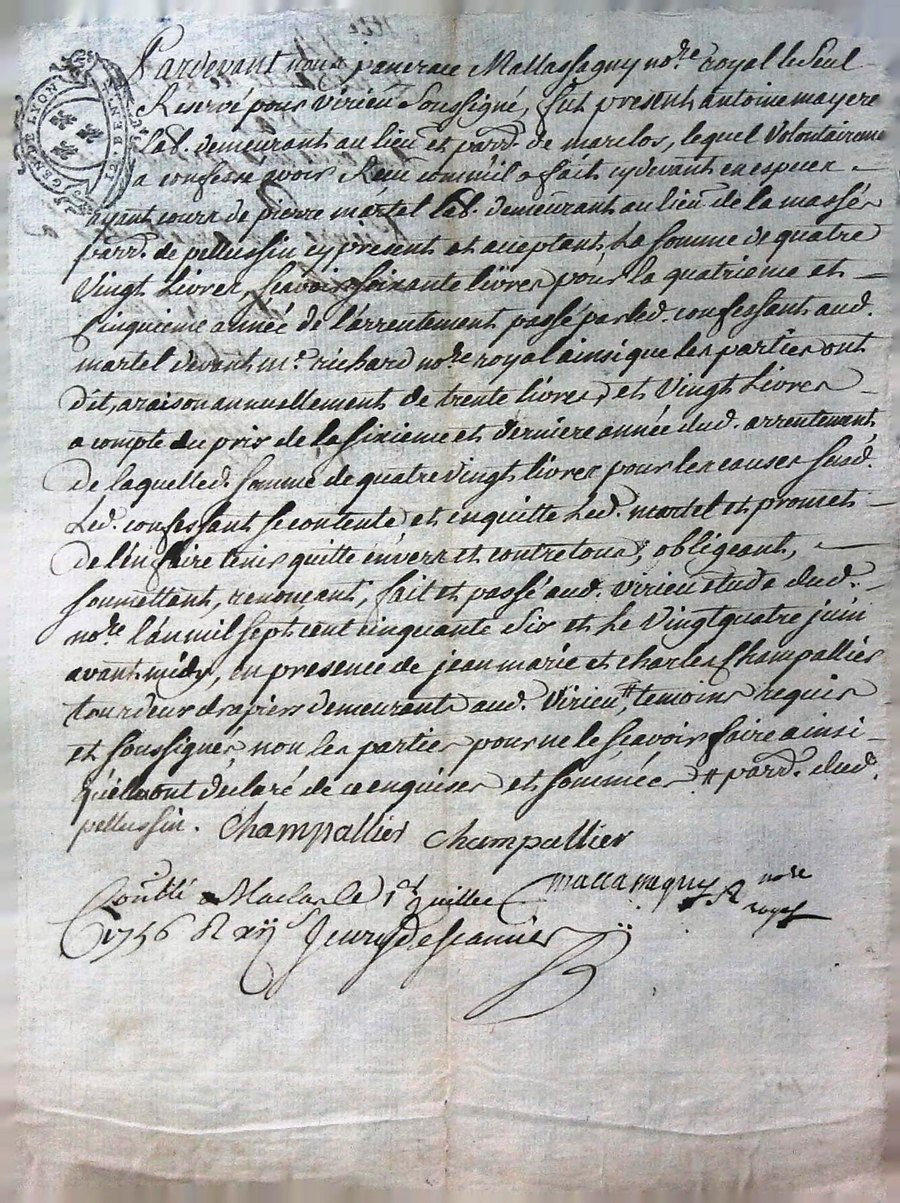 GEN DE LYON
Pardevant nous pancrace Mallassagny no.re royal le seul
Reservé pour virieu soussigné, fut present antoine mayere
lab. demeurant au lieu et parr. de marclos, lequel volontaireme
a confessé avoir Receu comm'il a fait cy devant en especes
ayant cours de pierre martel lab. demeurant au lieu de la massés
parr. de pellussin cy present et acceptant, la somme de quatre
Vingt Livres, scavoir soixante livres pour la quatrieme et
Cinquieme année de l'arrentement passé par led. confessant aud.
martel devant m.e richard no.re royal ainsi que les parties ont
dit, a raison annuellement de trente livres, et Vingt Livres
a compte du prix de la sixieme et derniere année dud. arrentement
de laquelle d. somme de quatre vingt livres pour les causes susd.
Led. confessant se contente et en quitte Led. martel et promet
de l'en faire tenir quitte envers et contre tous, obligeant,
soumettant, renonçant, fait et passé aud. virieu etude dud.
no.re l'an mil sept cent cinquante six et le vingtquatre juin
avant midy, en presence de jean marie et charles Champallier
tondeurs drapiers demeurants aud. virieu # temoins requis
et soussignés non les parties pour ne le scavoir faire ainsi
qu'elles ont déclaré de ce enquises et sommées # parr. dud.
pellussin. Champallier Champallier
Conttlé a Maclas le 1er juillet mallassagny no.re
1756 R xij s royal